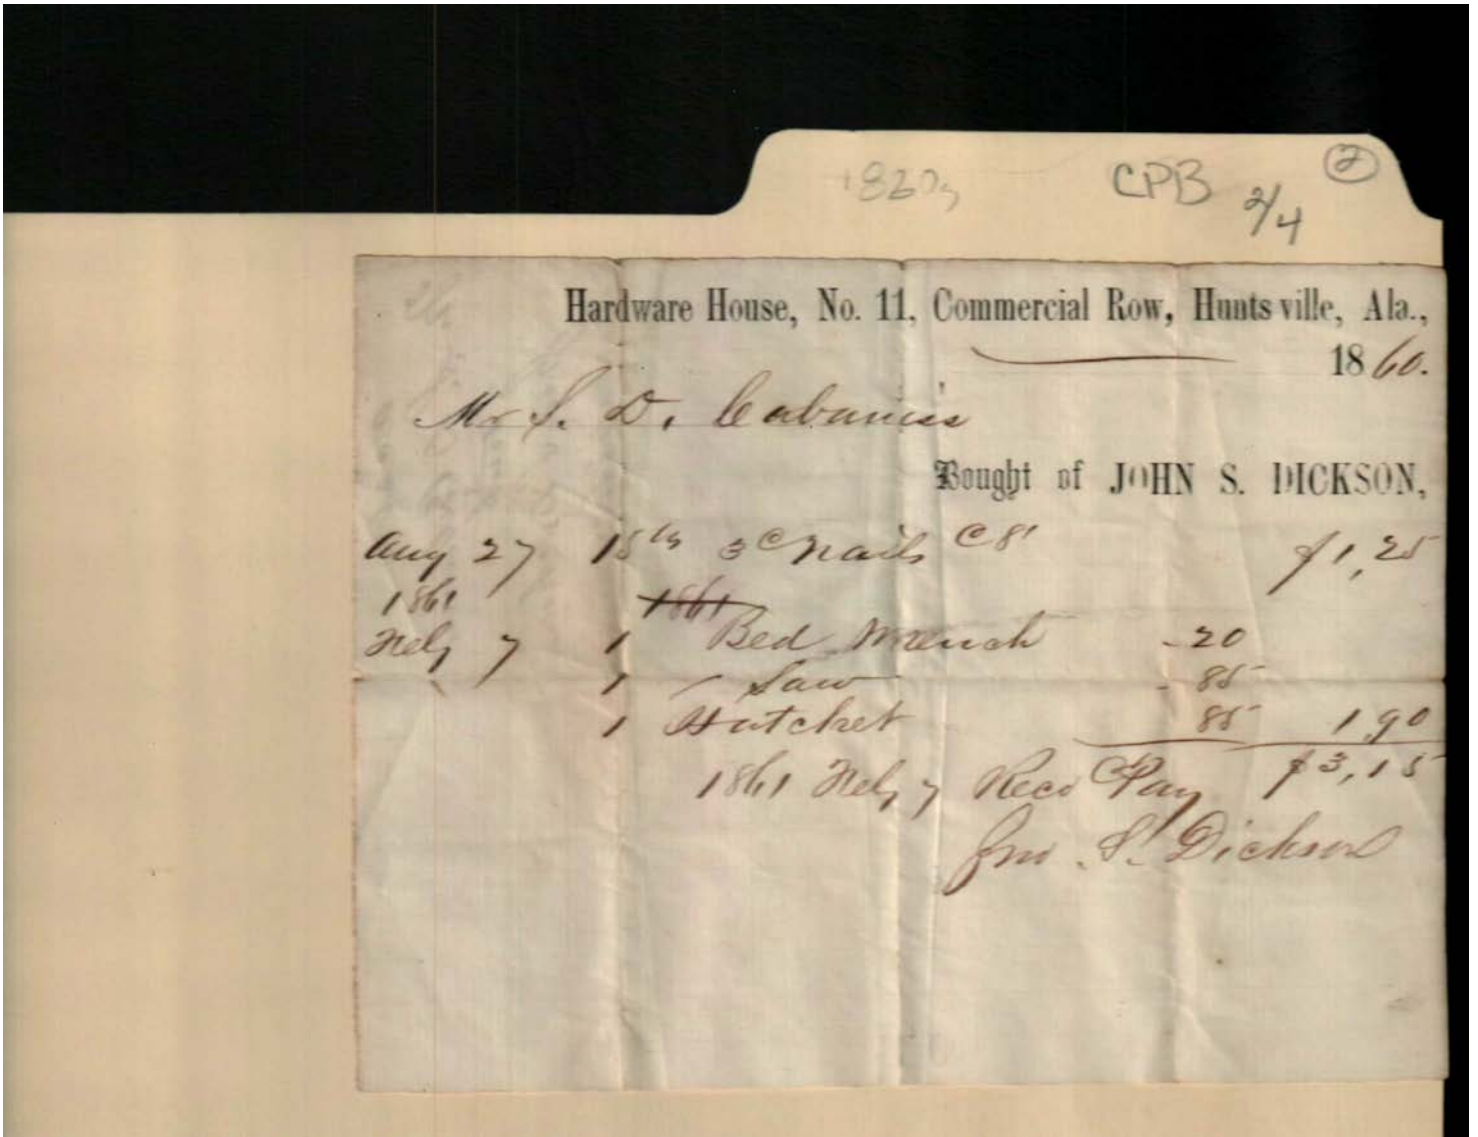 1860s CPB 2/4 2
Hardware House, No. 11, Commercial Row, Huntsville, Ala.,
1860.
Mr S. D. Cabaniss
Bought of JOHN S. DICKSON,
Aug 27 15 lb 3c nails $1,25
1861 1861
Feby 7 1 Bed Wrench - 20
1 Saw - 85
1 Hatchet 85 1,90
1861 Feby 7 Recd Pay $3,15
Jno. S. Dickson